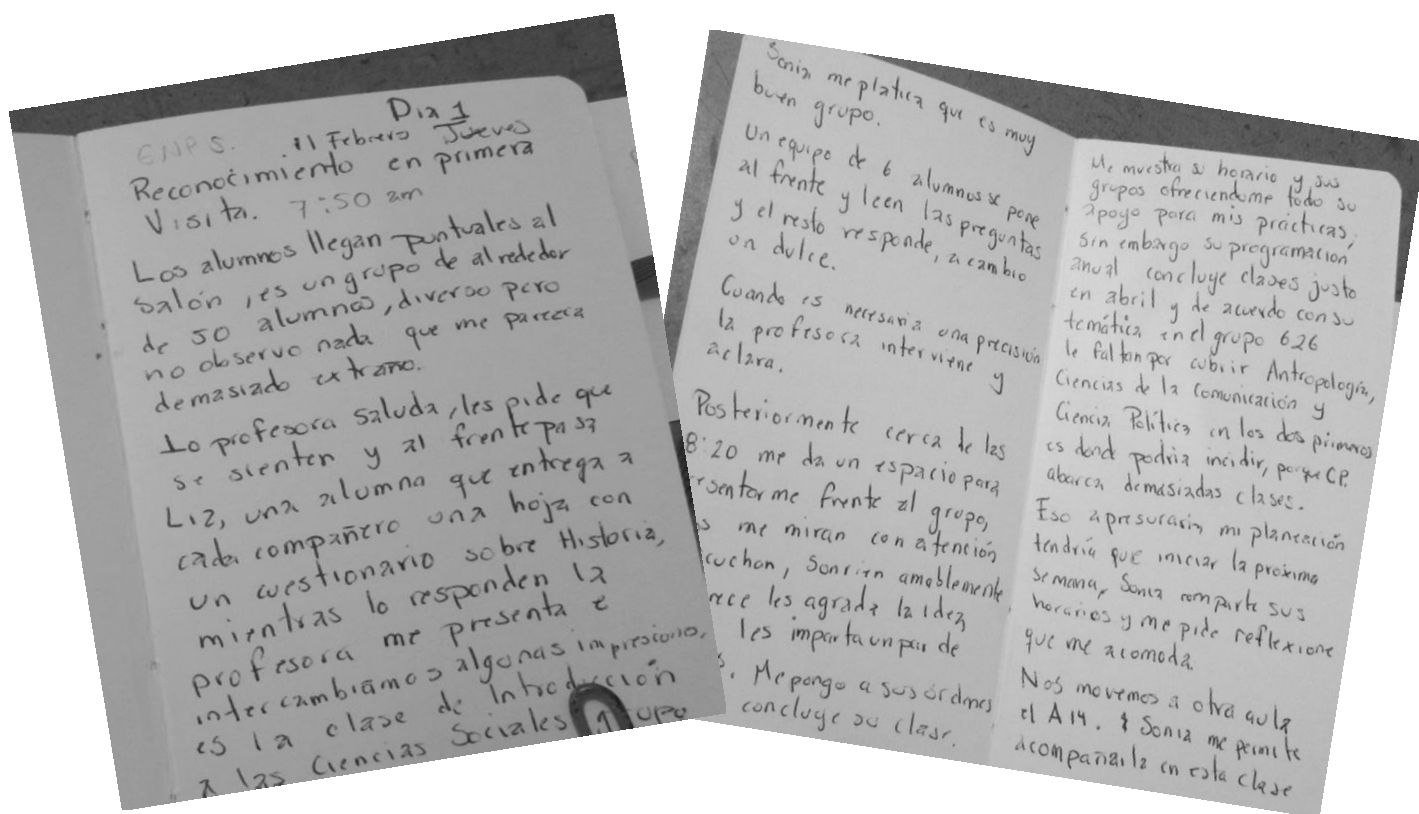 Dia 1
ENP 5. 11 Febrero Jueves
Reconocimiento en primera
Visita. 7:50 am
Los alumnos llegan puntuales al
salón, es un grupo de alrededor
de 50 alumnos, diverso pero
no observo nada que me pareera
demasiado extraño.
La profesora saluda, les pide que
se sienten y al frente pasa
Liz, una alumna que entrega a
cada compañero una hoja con
un cuestionario sobre Historia,
mientras lo responden la
profesora me presenta e
intercambiamos algunas impresiones,
es la clase de Introducción
a las Ciencias Sociales grupo
Sonia me platica que es muy
buen grupo.
Un equipo de 6 alumnos se pone
al frente y leen las preguntas
y el resto responde, a cambio
un dulce.
Cuando es necesaria una precisión
la profesora interviene y
aclara.
Posteriormente cerca de las
8:20 me da un espacio para
sentarme frente al grupo,
s me miran con atención
cuchan, sonrien amablemente
rece les agrada la idea
les imparta un par de
s. Me pongo a sus órdnes
concluye su clase.
Me muestra su horario y sus
grupos ofreciendome todo su
apoyo para mis prácticas;
sin embargo su programación
anual concluye clases justo
en abril y de acuerdo con su
temática en el grupo 626
le faltan por cubrir Antropología,
Ciencias de la Comunicación y
Ciencia Política en los dos primeros
es donde podría incidir, porque CP.
abarca demasiadas clases.
Eso apresuraria mi planeación
tendría que iniciar la próxima
semana, Sonia comparte sus
horarios y me pide reflexione
que me acomoda.
Nos movemos a otra aula
el A14. Sonia me permite
acompañarla en esta clase